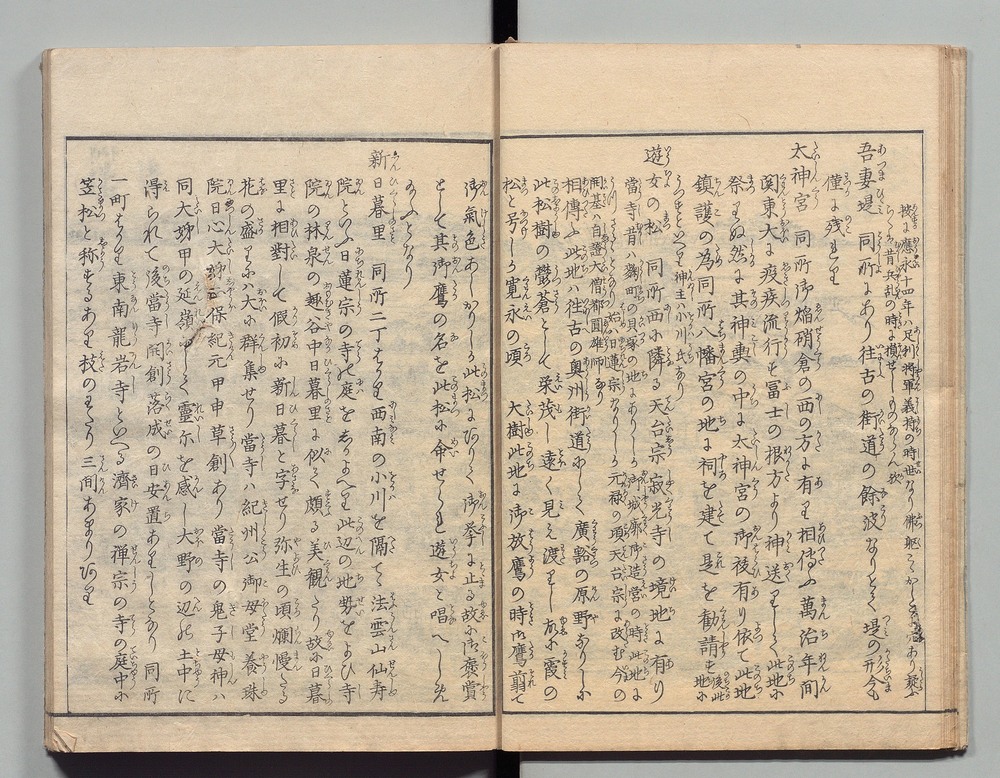 按に應永十四年ハ足利将軍義持の時世なり佛躯
昔兵乱の時に損せしものあらん歟
吾妻堤 同所にあり往古の街道の餘波なりとて堤の形今も
僅に残れり
太神宮 同所御焔硝倉の西の方に有り相傳ふ萬治年間
関東大に疫疾流行を冨士の根方より神送りして此地に
祭りぬ然に其神輿の中に太神宮の御祓有り依て此地
鎮護の為同所八幡宮の地に祠を建て是を勧請を
神主ハ小川氏なり
遊女の松 同所西に隣る天台宗寂光寺の境地に有り
當寺昔ハ麹町の貝塚の地にありしか御城廓御造営の時此地に
開基ハ自證大僧都圓雄師なり始ハ日蓮宗なりしか元禄の頃天台宗に改む今の
相傳ふ此地ハ往古の奥州街道にして廣豁の原野なりしに
此松樹の鬱蒼として栄茂し遠く見え渡りし故に霞の
松と号しか寛永の頃 大樹此地に御放鷹の時御鷹翦て
御氣色あしかりしか此松にありて御拳に止る故に御褒賞
として其御鷹の名を此松に命せられ遊女と唱へしとなん
いふとなり
新日暮里 同所二丁はかり西南の小川を隔て法雲山仙寿
院といふ日蓮宗の寺の庭をしかいへり此辺の地勢および寺
院の林泉の趣谷中日暮里に似て頗る美観たり故に日暮
里に相對して假初に新日暮と字せり弥生の頃爛慢たる
花の盛りにハ大に群集せり當寺ハ紀州公御母堂養珠
院日心大姉正保紀元甲申草創あり當寺の鬼子母神ハ
同大姉甲の延嶺にして靈尓を感し大野の辺の土中に
得られて後當寺開創落成の日安置ありしとなり同所
一町はかり東南龍岩寺といへる濟家の禅宗の寺の庭中に
笠松と称するあり枝のわたり三間あまりあり